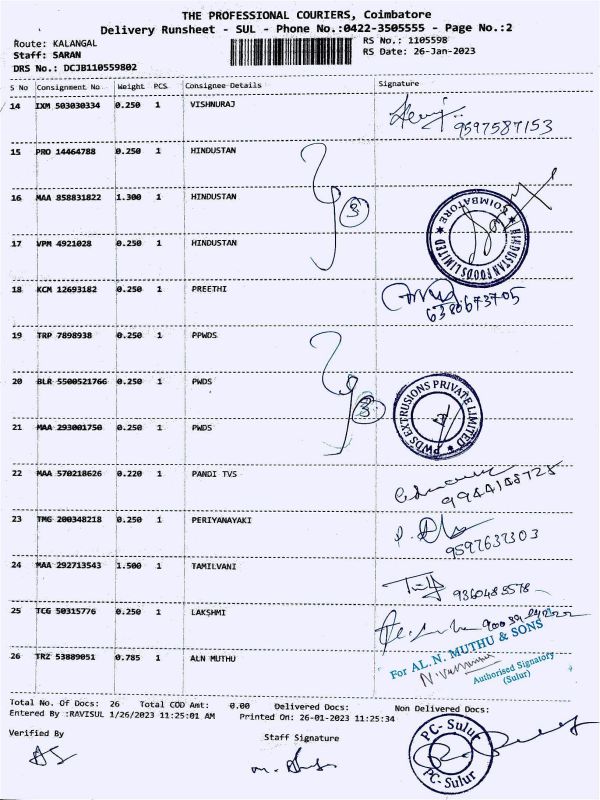 THE PROFESSIONAL COURIERS, Coimbatore
Delivery Runsheet - SUL - Phone No.:0422-3505555 - Page No.:2
Route: KALANGAL RS No.: 1105598
Staff: SARAN RS Date: 26-Jan-2023
DRS No.: DCJB110559802
S No Consignment No Weight PCS Consignee Details Signature
14 IXM 503030334 0.250 1 VISHNURAJ
9597587153
15 PRO 14464788 0.250 1 HINDUSTAN
16 MAA 858831822 1.300 1 HINDUSTAN
3
HINDUSTAN FOODS LIMITED COIMBATORE
17 VPM 4921028 0.250 1 HINDUSTAN
18 KCM 12693182 0.250 1 PREETHI
6380673705
19 TRP 7898938 0.250 1 PPWDS
20 BLR 5500521766 0.250 1 PWDS
3
PWDS EXTRUSIONS PRIVATE LIMITED
21 MAA 293001750 0.250 1 PWDS
22 MAA 570218626 0.220 1 PANDI TVS
23 TMG 200348218 0.250 1 PERIYANAYAKI
24 MAA 292713543 1.500 1 TAMILVANI
25 TCG 50315776 0.250 1 LAKSHMI
26 TRZ 53889051 0.785 1 ALN MUTHU
For AL. N. MUTHU & SONS
Authorised Signatory
(Sulur)
Total No. Of Docs: 26 Total COD Amt: 0.00 Delivered Docs: Non Delivered Docs:
Entered By :RAVISUL 1/26/2023 11:25:01 AM Printed On: 26-01-2023 11:25:34
Verified By Staff Signature
PC-Sulur
PC-Sulur